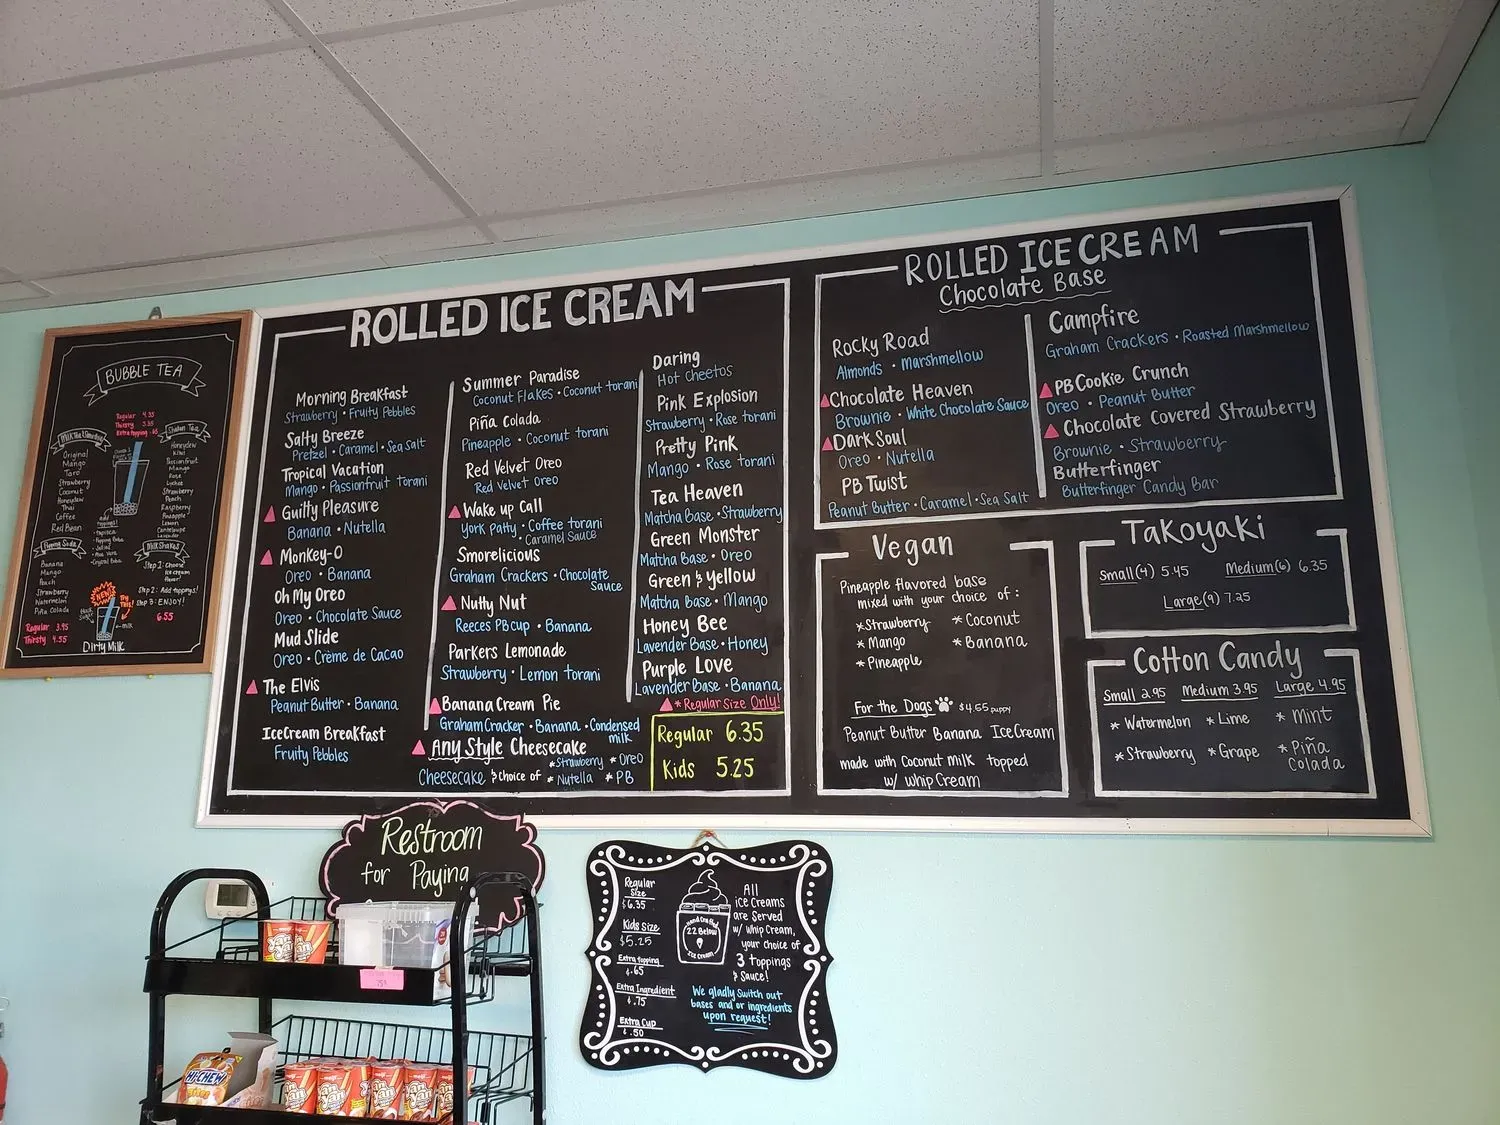 BUBBLE TEA
Regular 4.35
Extra topping .65
Milk Tea
Original
Mango
Taro
Strawberry
Coconut
Honeydew
Thai
Coffee
Red Bean
Honeydew
Kiwi
Passionfruit
Mango
Rose
Lychee
Strawberry
Peach
Raspberry
Pineapple
Lemon
Cantaloupe
Lavender
Banana
Mango
Peach
Strawberry
Watermelon
Piña Colada
Milk Shakes
Step 1: Choose
Ice cream
flavor!
Step 2: Add toppings!
Step 3: ENJOY!
6.55
NEW!
Try
THIS!
milk
Regular 3.95
Thirsty 4.55
Dirty Milk
ROLLED ICE CREAM
Morning Breakfast
Strawberry • Fruity Pebbles
Salty Breeze
Pretzel • Caramel • Sea Salt
Tropical Vacation
Mango • Passionfruit torani
Guilty Pleasure
Banana • Nutella
Monkey-O
Oreo • Banana
Oh My Oreo
Oreo • Chocolate Sauce
Mud Slide
Oreo • Crème de Cacao
The Elvis
Peanut Butter • Banana
IceCream Breakfast
Fruity Pebbles
Summer Paradise
Coconut Flakes • Coconut torani
Piña Colada
Pineapple • Coconut torani
Red Velvet Oreo
Red Velvet Oreo
Wake up Call
York Patty • Coffee torani
Caramel Sauce
Smorelicious
Graham Crackers • Chocolate
Sauce
Nutty Nut
Reeces PB cup • Banana
Parkers Lemonade
Strawberry • Lemon torani
Banana Cream Pie
Graham Cracker • Banana • Condensed
milk
Any Style Cheesecake
Cheesecake & choice of * Strawberry * Oreo
* Nutella * PB
Daring
Hot Cheetos
Pink Explosion
Strawberry • Rose torani
Pretty Pink
Mango • Rose torani
Tea Heaven
Matcha Base • Strawberry
Green Monster
Matcha Base • Oreo
Green & Yellow
Matcha Base • Mango
Honey Bee
Lavender Base • Honey
Purple Love
Lavender Base • Banana
* Regular Size Only!
Regular 6.35
Kids 5.25
ROLLED ICE CREAM
Chocolate Base
Rocky Road
Almonds • Marshmellow
Chocolate Heaven
Brownie • White Chocolate Sauce
Dark Soul
Oreo • Nutella
PB Twist
Peanut Butter • Caramel • Sea Salt
Campfire
Graham Crackers • Roasted Marshmellow
PB Cookie Crunch
Oreo • Peanut Butter
Chocolate Covered Strawberry
Brownie • Strawberry
Butterfinger
Butterfinger Candy Bar
Vegan
Pineapple flavored base
mixed with your choice of :
* Strawberry * Coconut
* Mango * Banana
* Pineapple
For the Dogs $4.55 puppy
Peanut Butter Banana IceCream
made with Coconut milk topped
w/ whip Cream
Takoyaki
Small(4) 5.45 Medium(6) 6.35
Large(9) 7.25
Cotton Candy
Small 2.95 Medium 3.95 Large 4.95
* Watermelon * Lime * Mint
* Strawberry * Grape * Piña
Colada
Restroom
for Paying
Regular
Size
$6.35
Kids Size
$5.25
Extra topping
$.65
Extra Ingredient
$.75
Extra Cup
$.50
Hand Crafted
22 Below
Ice Cream
All
ice Creams
are Served
w/ whip Cream,
your choice of
3 toppings
& Sauce!
We gladly Switch out
bases and or ingredients
upon request!
HI-CHEW
Yan
Yan